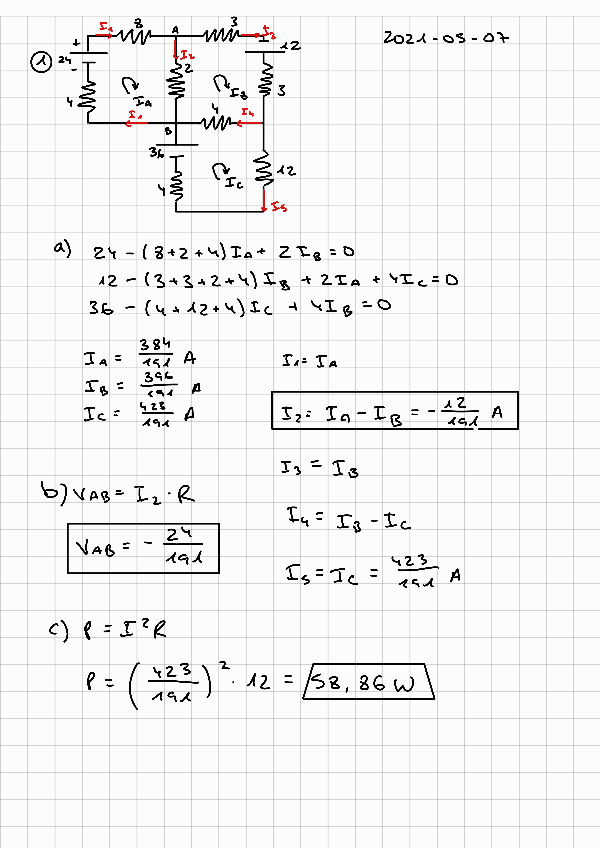 2021-05-07
1
I₁ 8 A 3 I₃
24 + - I₂ 2 12
4 I_A I_B 3
I₁ B 4 I₄
36 I_C 12
4 I₅
a) 24 - (8+2+4) I_A + 2 I_B = 0
12 - (3+3+2+4) I_B + 2 I_A + 4 I_C = 0
36 - (4+12+4) I_C + 4 I_B = 0
I_A = 384/191 A
I₁ = I_A
I_B = 396/191 A
I_C = 423/191 A
I₂ = I_A - I_B = - 12/191 A
I₃ = I_B
b) V_AB = I₂ · R
I₄ = I_B - I_C
V_AB = - 24/191
I₅ = I_C = 423/191 A
c) P = I²R
P = (423/191)² · 12 = 58,86 W